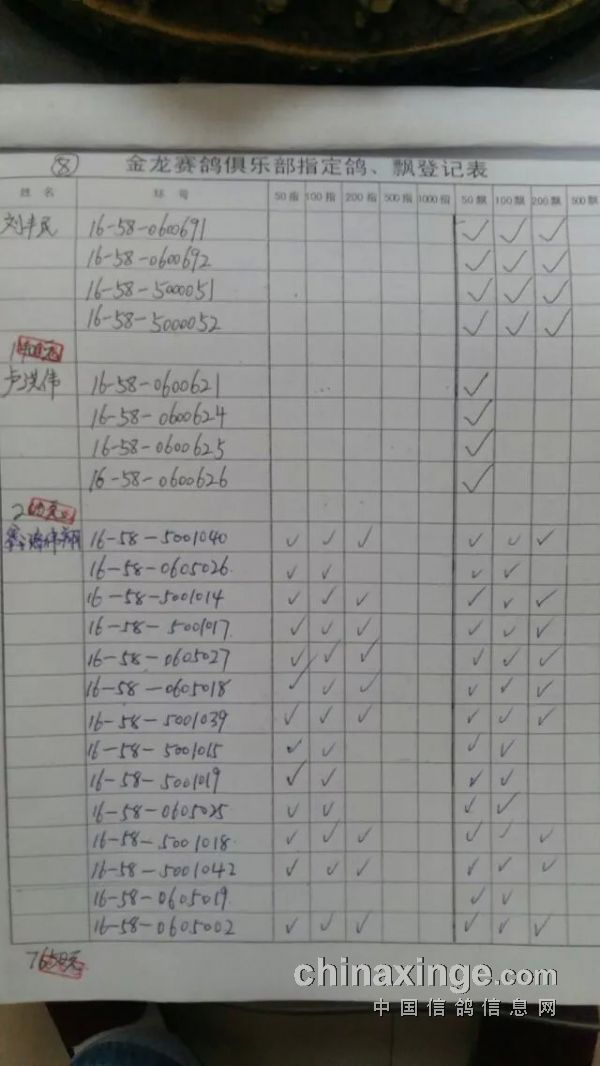 ⑧ 金龙赛鸽俱乐部指定鸽、飘登记表
姓名 环号 50指 100指 200指 500指 1000指 50飘 100飘 200飘 500飘
刘丰民 16-58-0600691 ✓ ✓ ✓
16-58-0600692 ✓ ✓ ✓
16-58-5000051 ✓ ✓ ✓
16-58-5000052 ✓ ✓ ✓
1400元
卢洪伟 16-58-0600621 ✓
16-58-0600624 ✓
16-58-0600625 ✓
16-58-0600626 ✓
16-58-5001040 ✓ ✓ ✓ ✓ ✓ ✓
16-58-0605026 ✓ ✓ ✓ ✓
16-58-5001014 ✓ ✓ ✓ ✓ ✓ ✓
16-58-5001017 ✓ ✓ ✓ ✓ ✓ ✓
16-58-0605027 ✓ ✓ ✓ ✓ ✓ ✓
16-58-0605018 ✓ ✓ ✓ ✓ ✓ ✓
16-58-5001039 ✓ ✓ ✓ ✓ ✓ ✓
16-58-5001015 ✓ ✓ ✓ ✓
16-58-5001019 ✓ ✓ ✓ ✓
16-58-0605025 ✓ ✓ ✓ ✓
16-58-5001018 ✓ ✓ ✓ ✓ ✓ ✓
16-58-5001042 ✓ ✓ ✓ ✓ ✓ ✓
16-58-0605019 ✓ ✓
16-58-0605002 ✓ ✓ ✓ ✓ ✓ ✓
7650元
chinaxinge.com
中国信鸽信息网